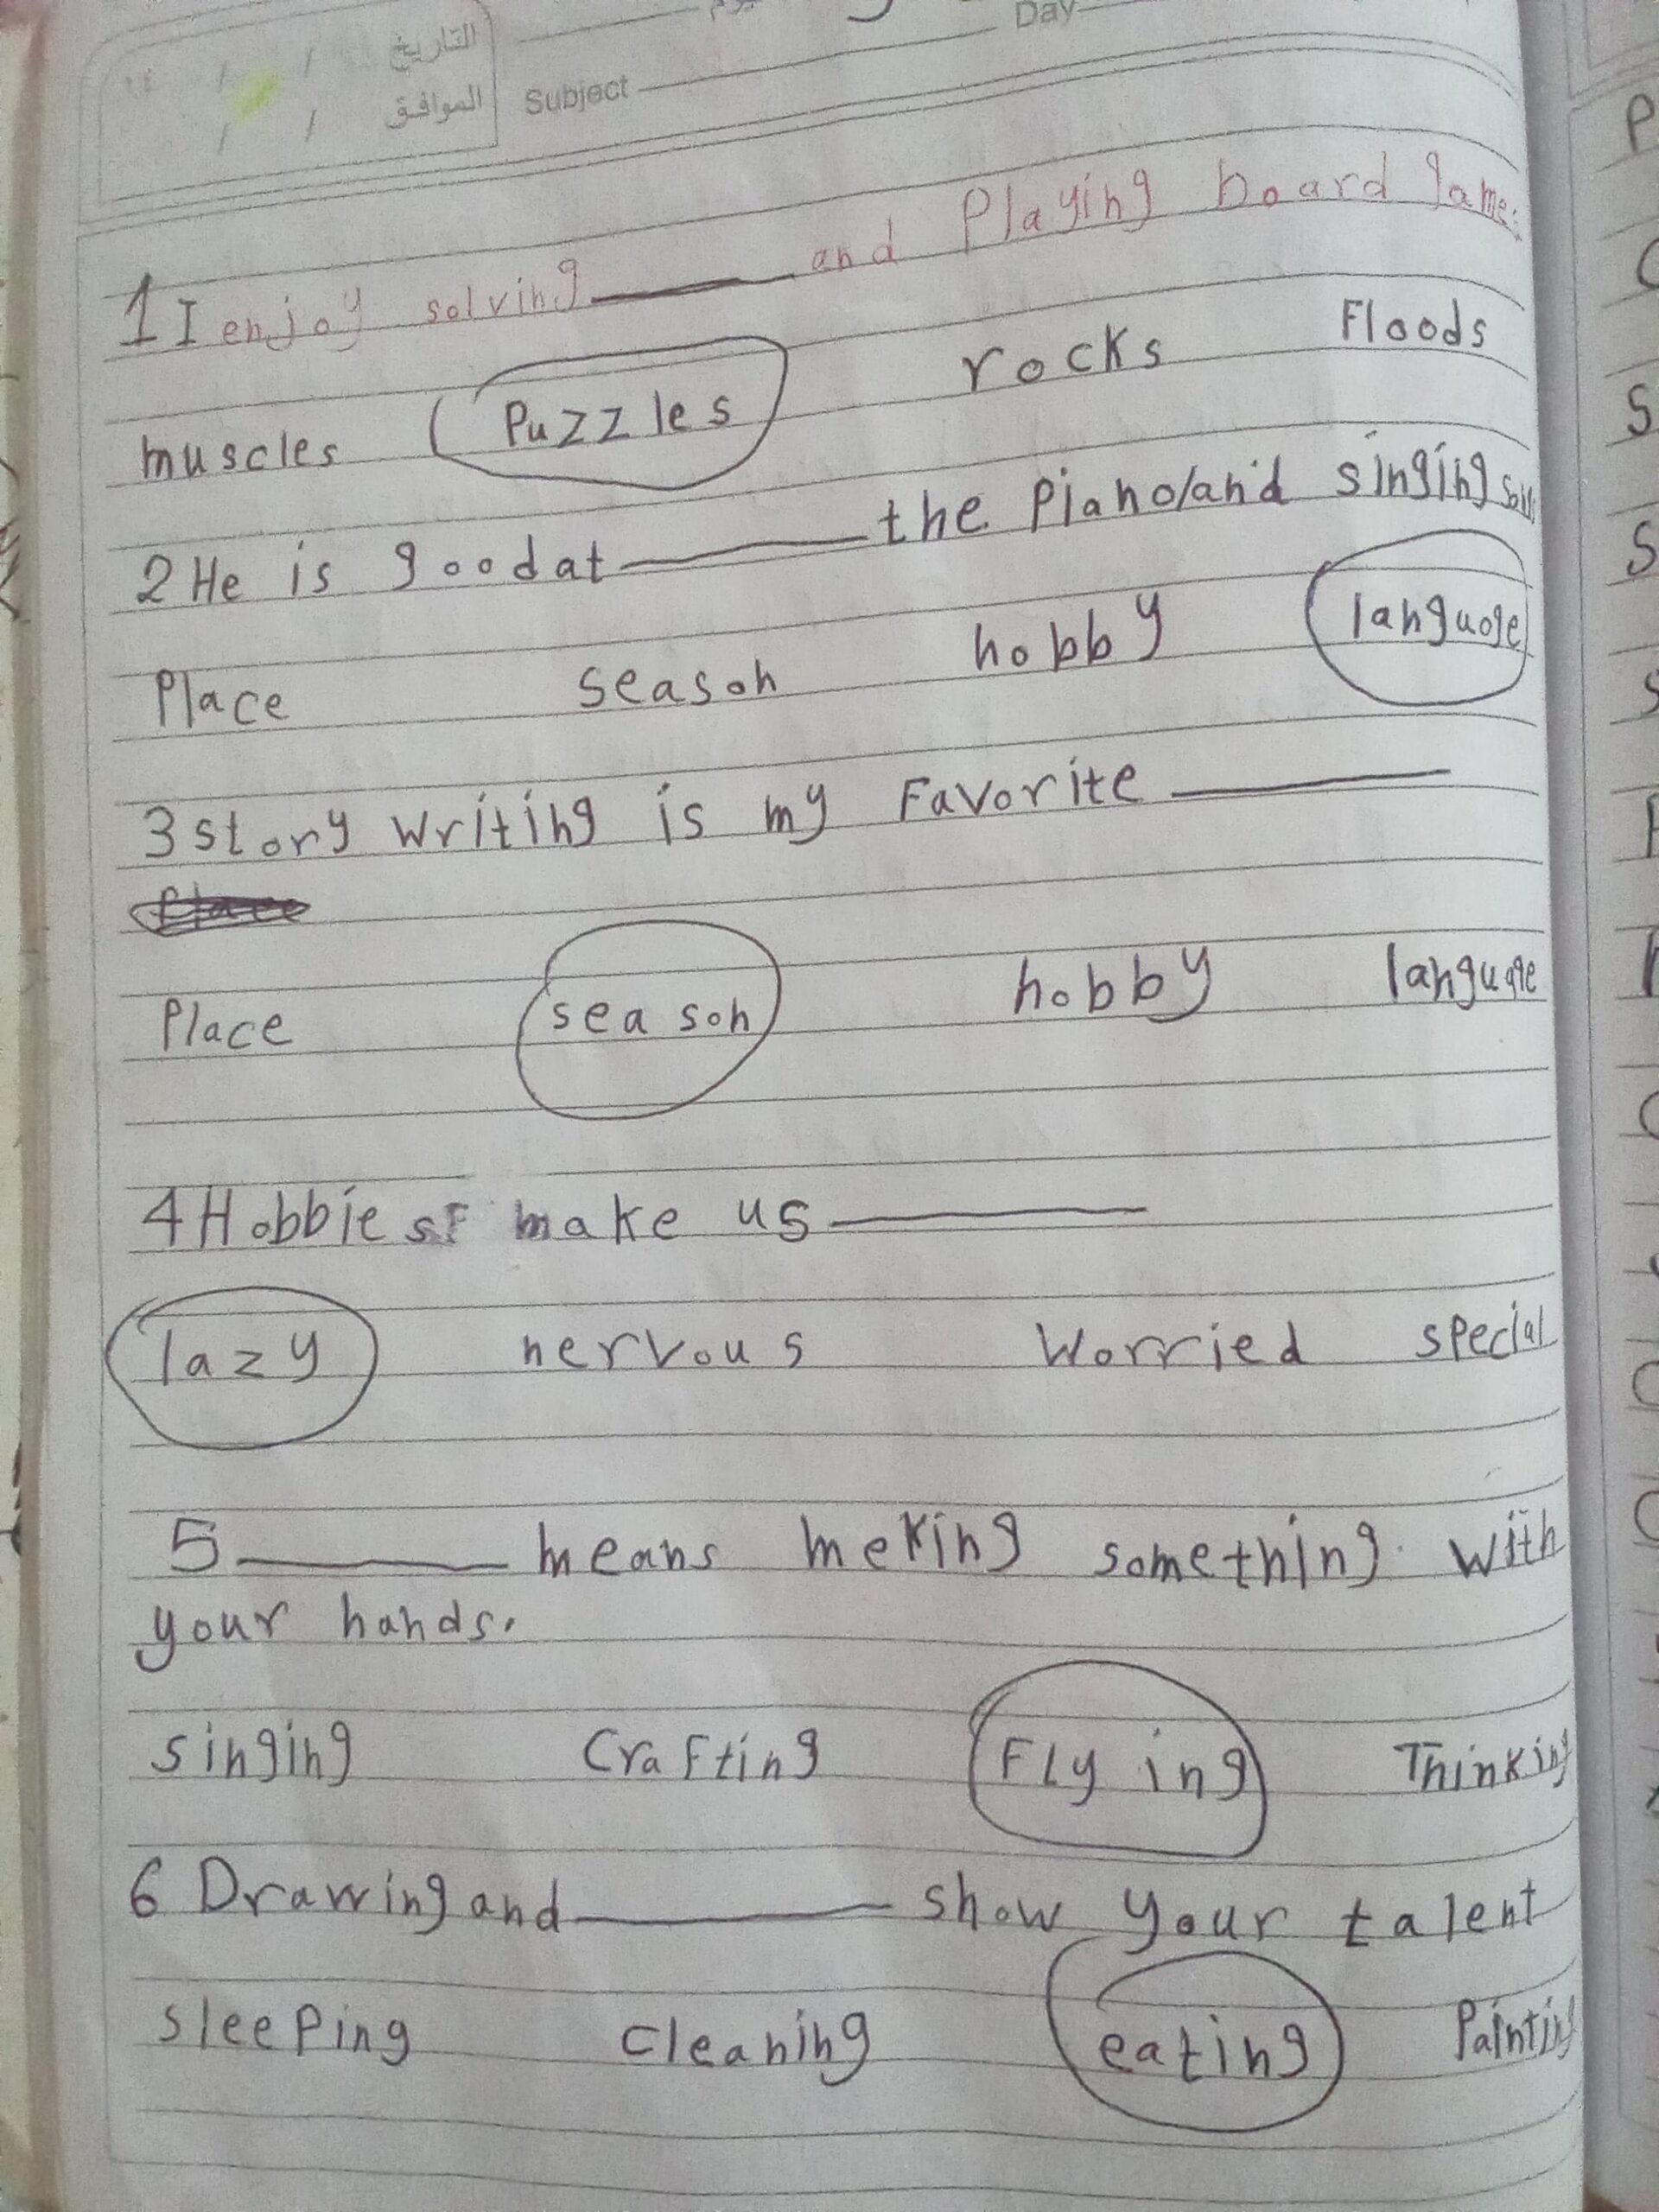 التاريخ / /
الموافق / /
Day
Subject
1 I enjoy solving ______ and Playing board game
muscles Puzzles rocks Floods
2 He is goodat ______ the Piano/and singing
Place season hobby language
3 story writing is my Favorite ______
Place season hobby language
4 Hobbies make us ______
lazy nervous Worried special
5 ______ means meking something with
your hands.
singing Crafting Flying Thinking
6 Drawing and ______ show your talent
sleeping cleaning eating Painting